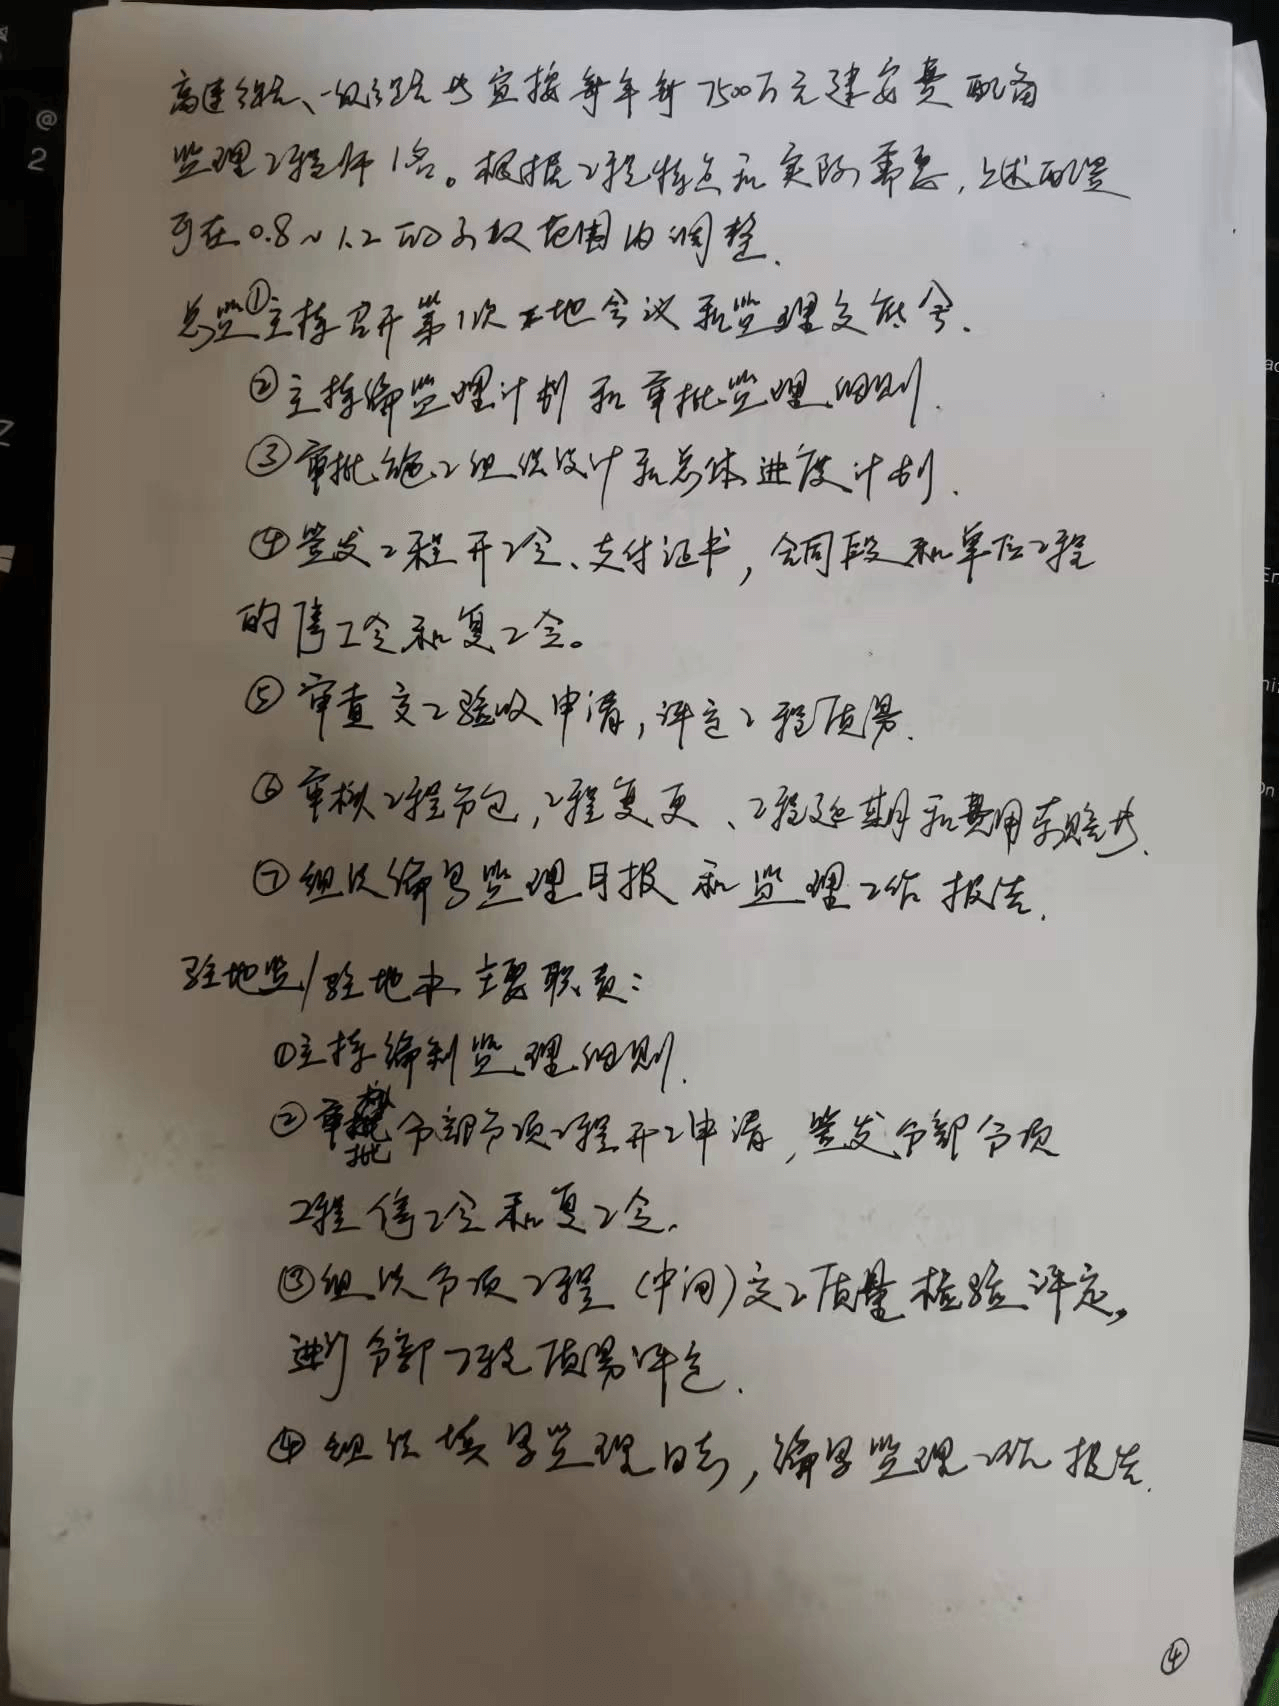 高速公路、一级公路等宜按每年每7500万元建安费配备
监理工程师1名。根据工程特点和实际需要,上述配置
可在0.8~1.2的系数范围内调整.
总监①主持召开第1次工地会议和监理交底会.
②主持编监理计划和审批监理细则.
③审批施工组织设计和总体进度计划.
④签发工程开工令、支付证书,合同段和单位工程
的停工令和复工令。
⑤审查交工验收申请,评定工程质量.
⑥审核工程分包,工程变更、工程延期和费用索赔等.
⑦组织编写监理月报和监理工作报告.
驻地监/驻地办主要职责:
①主持编制监理细则.
②审批分部分项工程开工申请,签发分部分项
工程停工令和复工令.
③组织分项工程(中间)交工质量检验评定,
进行分部工程质量评定.
④组织填写监理日志,编写监理工作报告.
④
@
2
Z